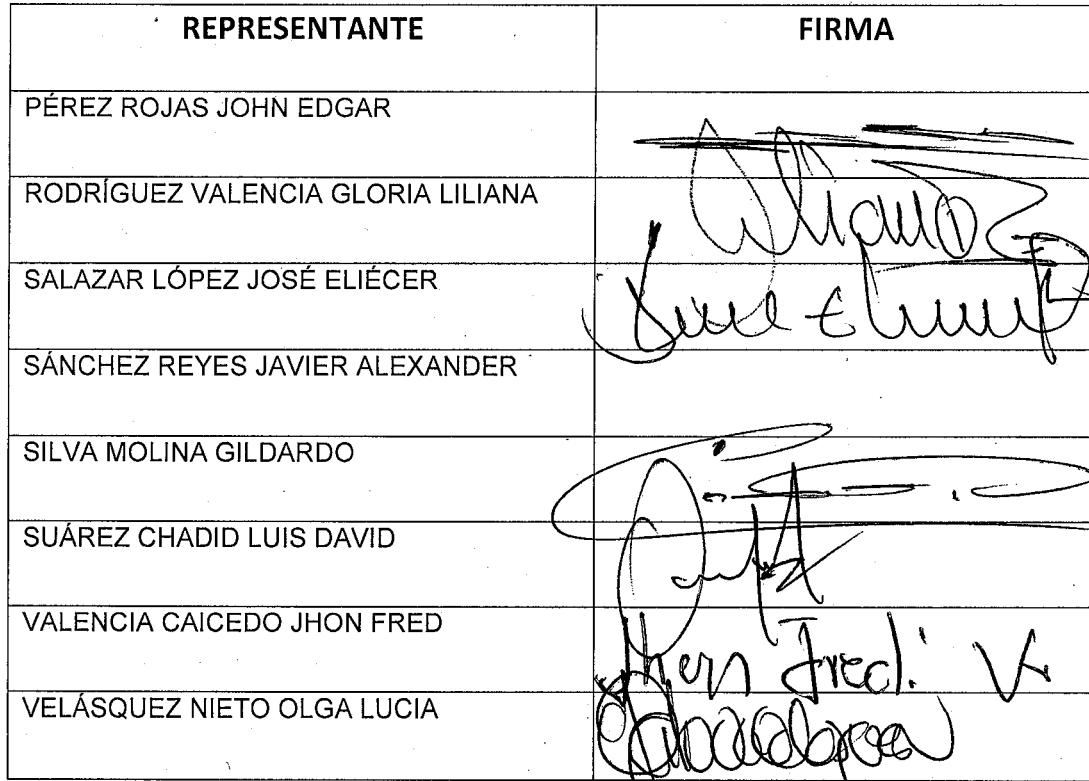 REPRESENTANTE FIRMA
PÉREZ ROJAS JOHN EDGAR
RODRÍGUEZ VALENCIA GLORIA LILIANA
SALAZAR LÓPEZ JOSÉ ELIÉCER
SÁNCHEZ REYES JAVIER ALEXANDER
SILVA MOLINA GILDARDO
SUÁREZ CHADID LUIS DAVID
VALENCIA CAICEDO JHON FRED
Jhon Fredi V
VELÁSQUEZ NIETO OLGA LUCIA